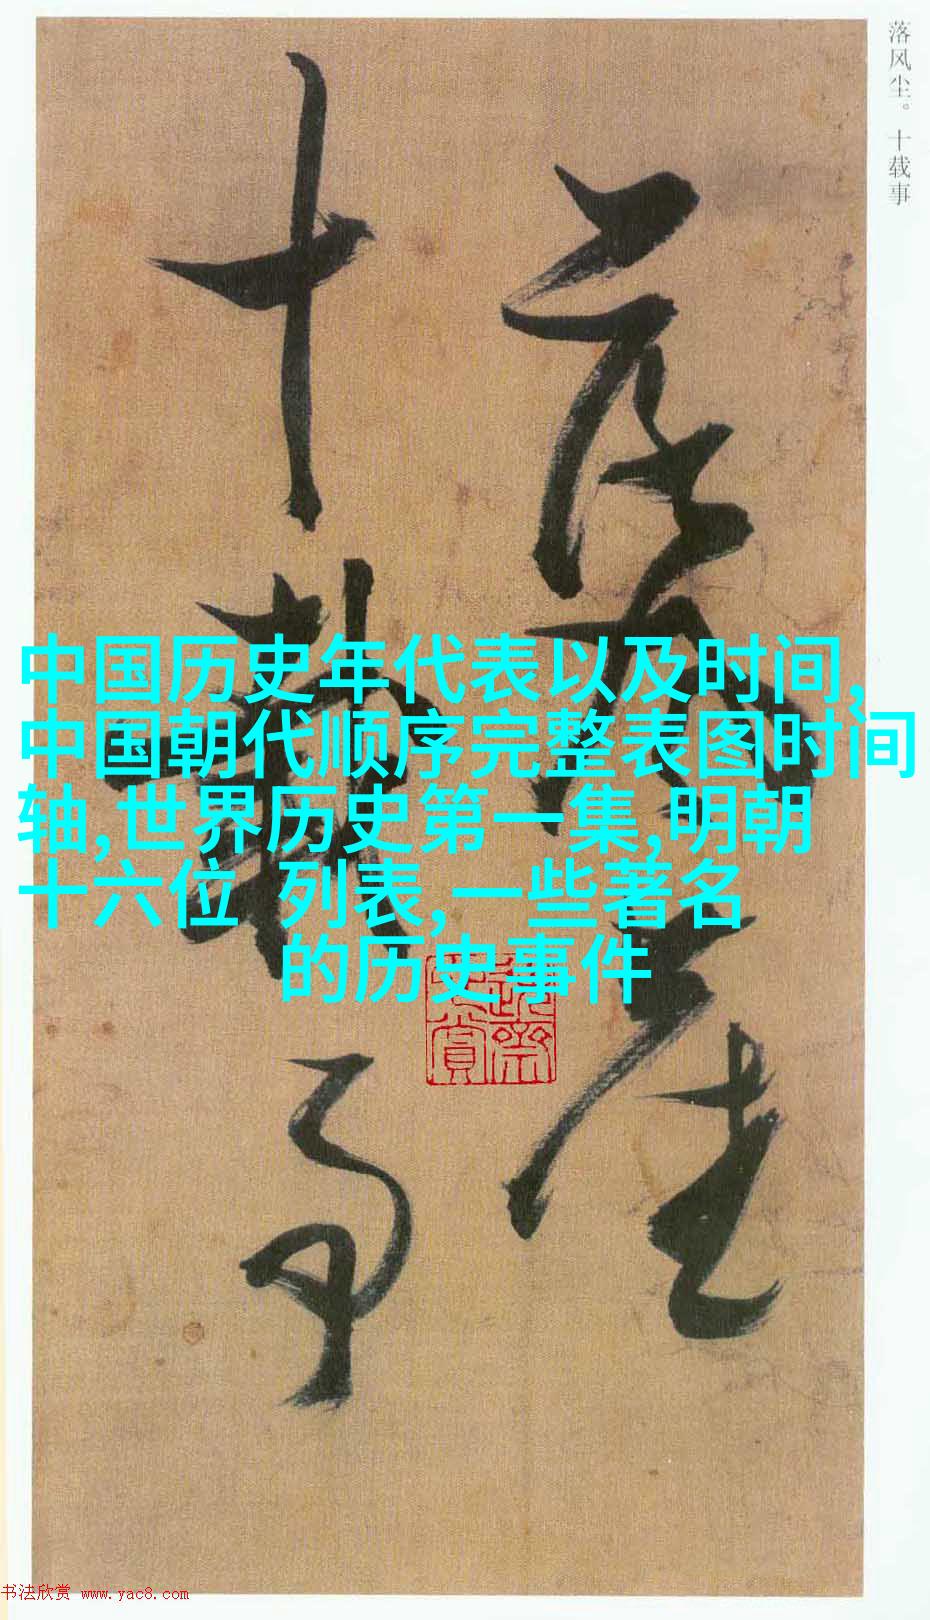 落风尘。十载事
落风尘
十载事
中国历史年代表以及时间,
中国朝代顺序完整表图时间
轴,世界历史第一集,明朝
十六位 列表,一些著名
的历史事件
书法欣赏 www.yac8.com